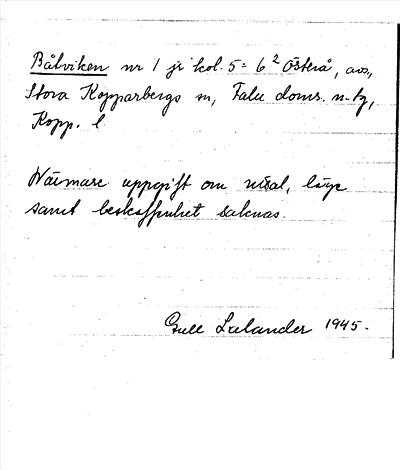 Bålviken nr 1 jr kol. 5 = 6² Österå, avs.,
Stora Kopparbergs sn, Falu doms. n. tg,
Kopp. l
Närmare uppgift om uttal, läge
samt beskaffenhet saknas.
Gull Lalander 1945.